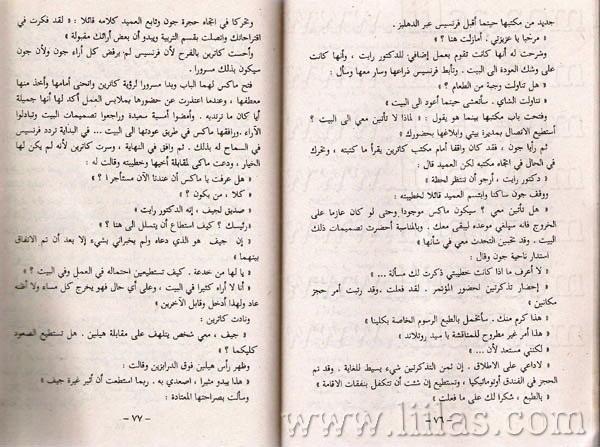 جديد من مكتبها حينما أقبل فرنسيس عبر الدهليز .
« مرحبا يا عزيزتي . أمازلت هنا ؟ »
وشرحت له أنها كانت تقوم بعمل إضافي للدكتور رايت ، وأنها كانت
على وشك العودة الى البيت . وتأبط فرنسيس ذراعها وسار معها وسأل :
« هل تناولت وجبة من الطعام ؟ »
« تناولت الشاي . سأتعشى حينما أعود الى البيت »
وفتحت باب مكتبها بينما هو يقول : « لماذا لا تأتين معي الى البيت ؟
أستطيع الاتصال بمديرة بيتي وابلاغها بحضورك »
ثم رأيا جون ، فقد كان واقفا أمام مكتب كاترين يقرأ ما كتبته ، وتحرك
في الحال في اتجاه مكتبه لكن العميد قال :
« دكتور رايت ، أرجو أن تنتظر لحظة »
ووقف جون ساكنا وابتسم العميد قائلا لخطيبته :
« هل تأتين معي ؟ سيكون ماكس موجودا وحتى لو كان عازما على
الخروج فانه سيلغي موعده ليبقى معك . وبالمناسبة أحضرت تصميمات ذلك
البيت . وقد تحبين التحدث معي في شأنها »
استدار ناحية جون وقال :
« لا أعرف ما اذا كانت خطيبتي ذكرت لك مسألة ... »
« إحضار تذكرتين لحضور المؤتمر . لقد فعلت . وقد رتبت أمر حجز
مكانين »
« هذا كرم منك . سأتحمل بالطبع الرسوم الخاصة بكلينا »
« هذا أمر غير مطروح للمناقشة يا سيد روتلاند »
« لكنني مستعد لأن ... »
« لاداعي على الاطلاق . إن ثمن التذكرتين شيء بسيط للغاية . وقد تم
الحجز في الفندق أوتوماتيكيا ، وتستطيع إن شئت أن تتكفل بنفقات الاقامة »
« بالطبع ، شكرا لك على ما فعلت »
– ٧٦ –
وتحركا في اتجاه حجرة جون وتابع العميد كلامه قائلا : « لقد فكرت في
اقتراحاتك واتصلت بقسم التربية ويبدو أن بعض أرائك مقبولة »
وأحست كاترين بالفرح لأن فرنسيس لم يرفض كل أراء جون ولأن جون
سيكون بذلك مسرورا .
فتح ماكس لهما الباب وبدا مسرورا لرؤية كاترين وانحنى أمامها وأخذ منها
معطفها ، وعندما اعتذرت عن حضورها بملابس العمل أكد لها أنها جميلة
أيا كان ما ترتديه . وأمضوا أمسية سعيدة وراجعوا تصميمات البيت وتبادلوا
الآراء . ورافقها ماكس في طريق عودتها الى البيت ... في البداية تردد فرنسيس
في السماح له بذلك . ثم وافق في النهاية ، وسرت كاترين لأنه لم يكن لها
الخيار ، ودعت ماكس لمقابلة أخيها وخطيبته وقالت له :
« هل عرفت يا ماكس أن عندنا الآن مستأجرا ؟ »
« كلا ، من يكون ؟ »
« صديق لجيف . إنه الدكتور رايت »
« رئيسك ؟ كيف استطاع أن يتسلل الى هنا ؟ »
« إن جيف هو الذي دعاه ولم يخبراني بشيء إلا بعد أن تم الاتفاق
بينهما »
« يا لها من خدعة . كيف تستطيعين احتماله في العمل وفي البيت ؟ »
« أنا لا أراه كثيرا في البيت ، وعلى أي حال فهو يخرج كل مساء ولا أظنه
عاد ولهذا أدخل وقابل الآخرين »
ونادت كاترين :
« جيف ، معي شخص يتلهف على مقابلة هيلين . هل تستطيع الصعود
كليكما ؟ »
وظهر رأس هيلين فوق الدرابزين وقالت :
« هذا يبدو مثيرا ، اصعدي به . ربما استطعت أن أثير غيرة جيف »
وسألت بصراحتها المعتادة :
– ٧٧ –
www.liilas.com